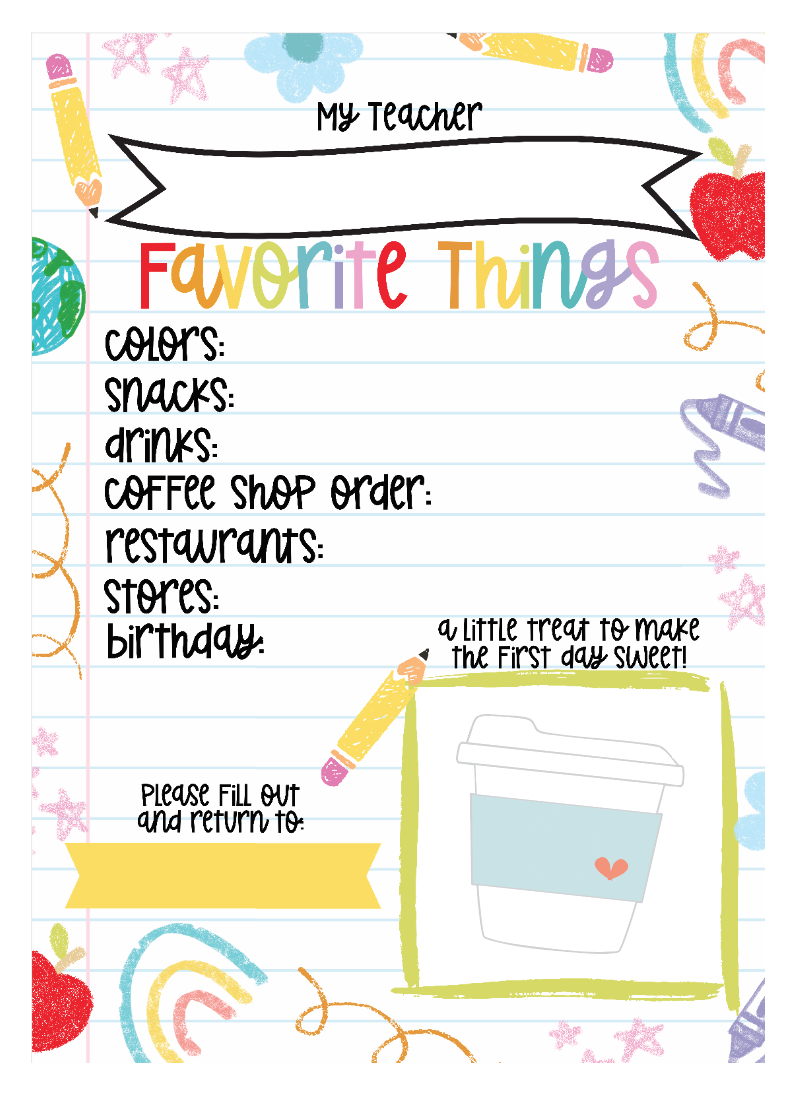 My Teacher
Favorite Things
colors:
snacks:
drinks:
coffee shop order:
restaurants:
stores:
birthday:
a little treat to make
the first day sweet!
Please fill out
and return to: